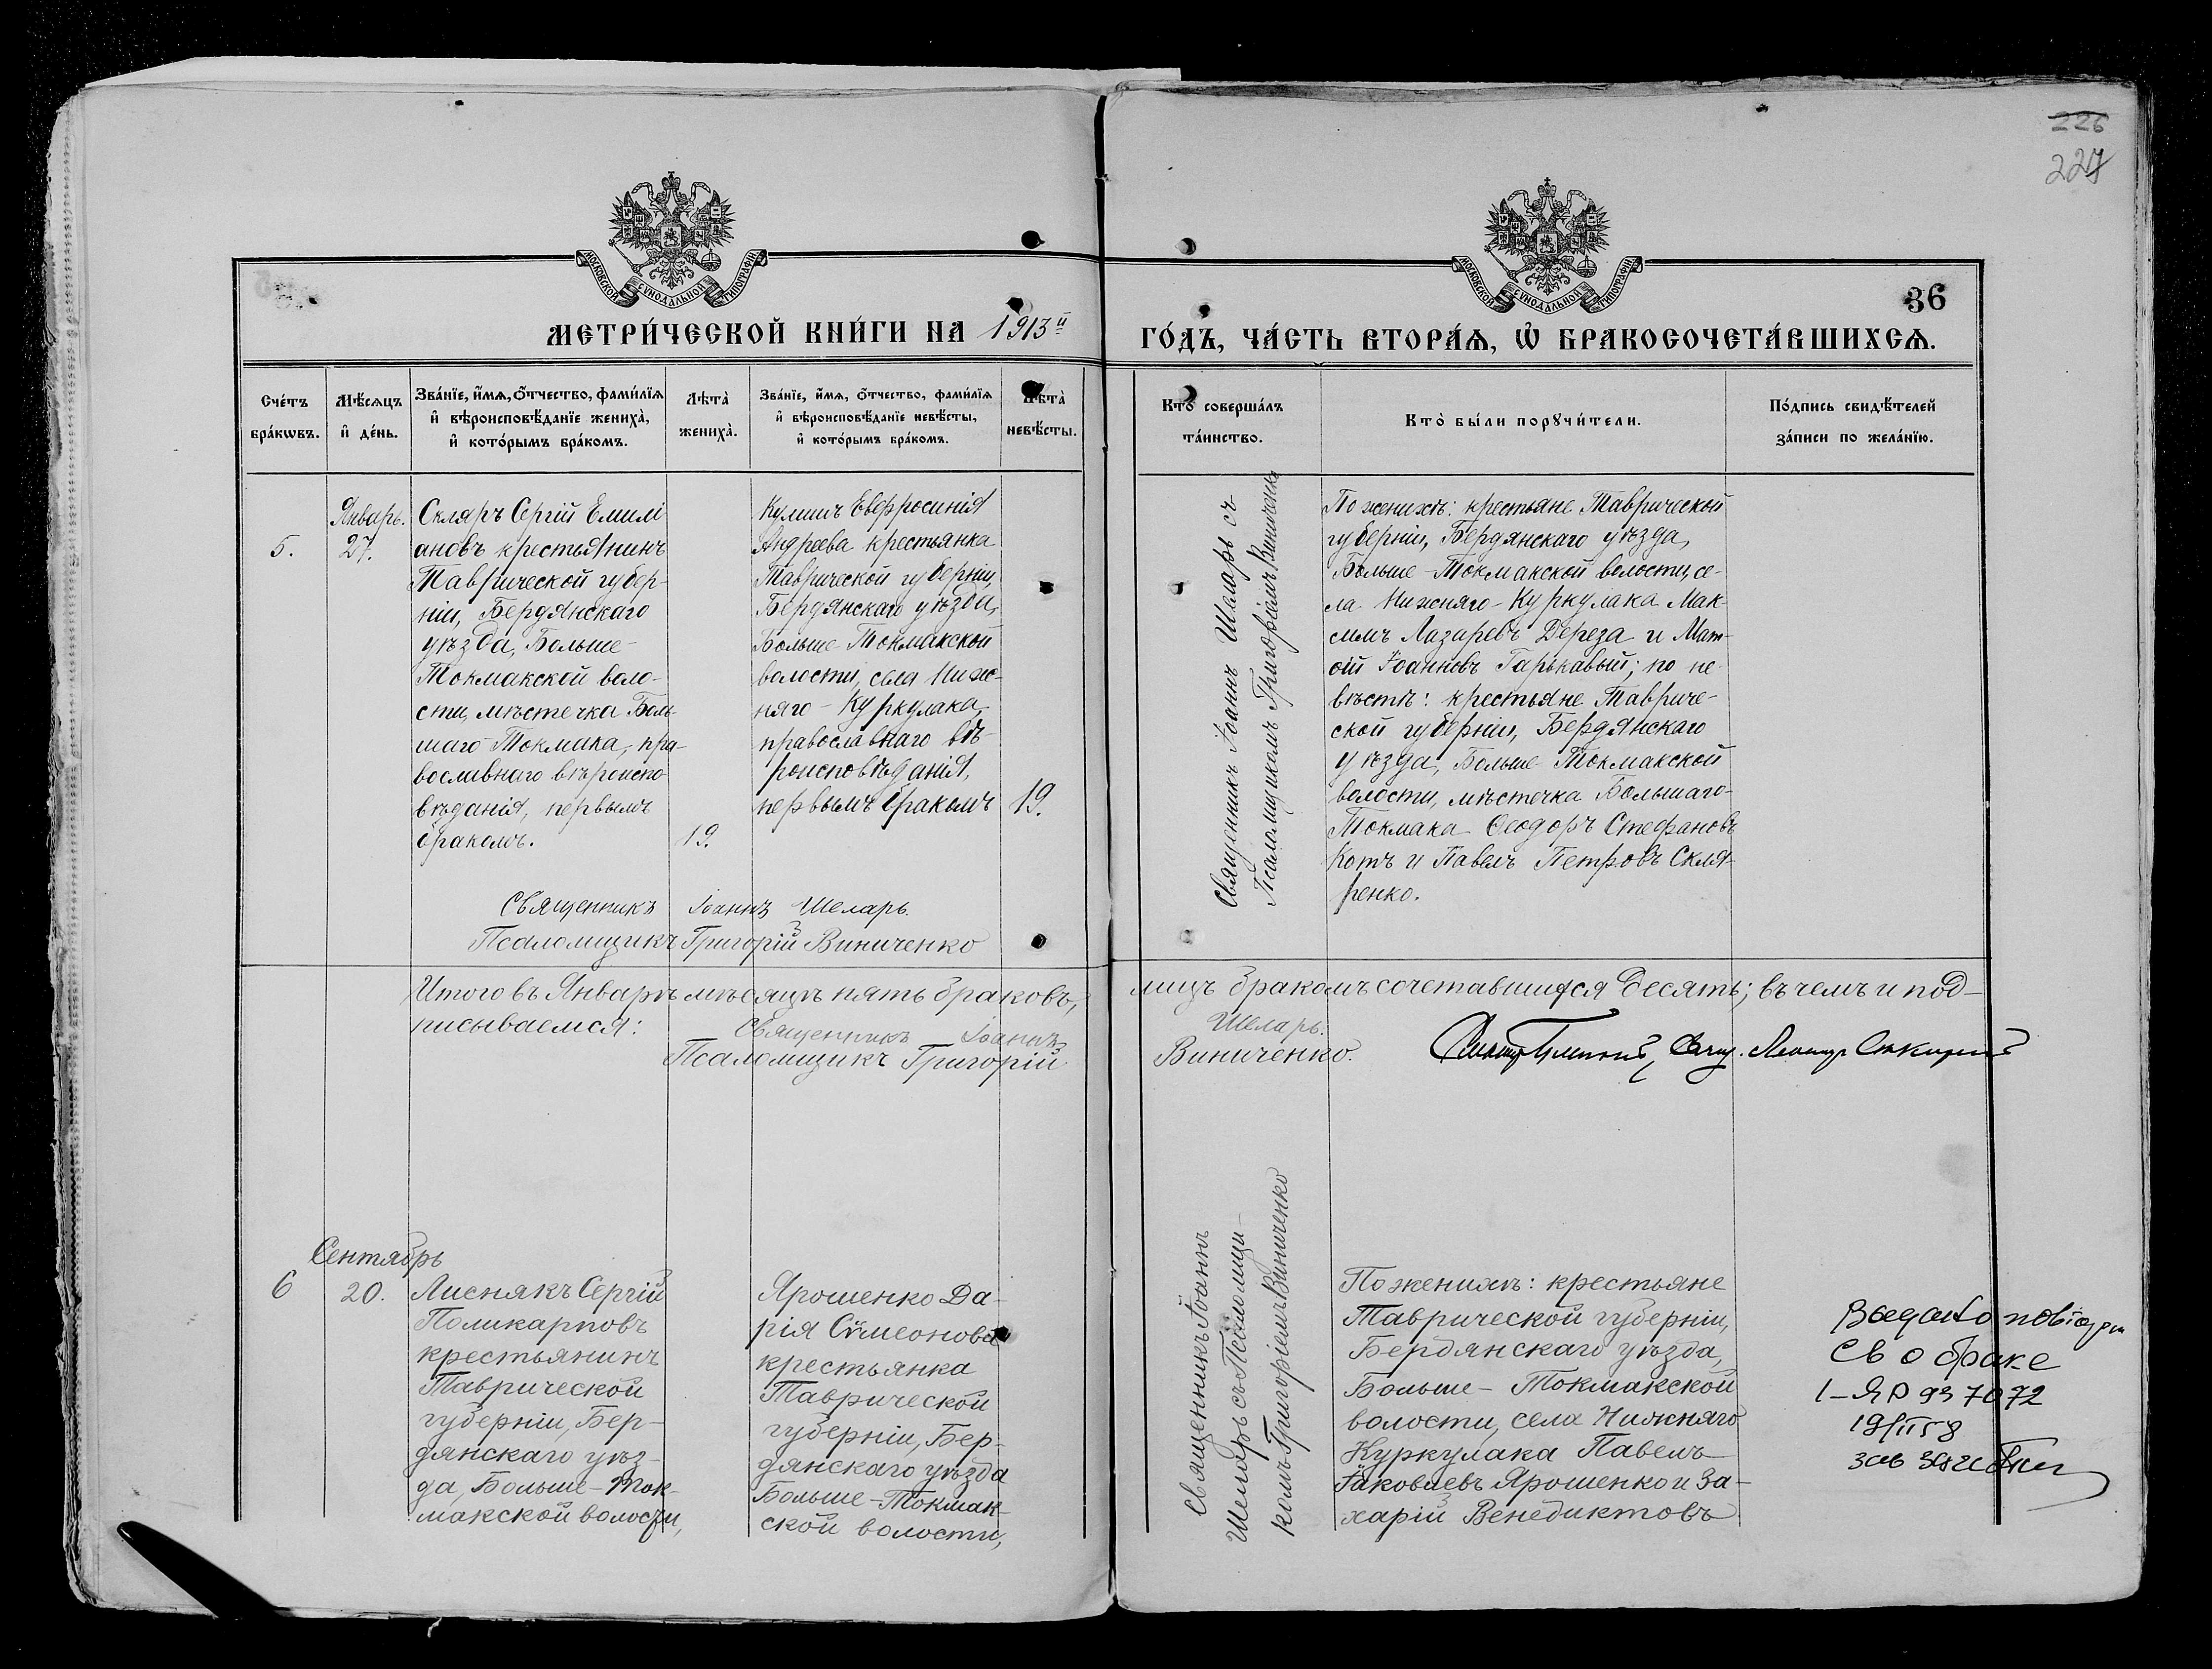 226
227
МОСКОВСКОЙ СѴНОДАЛЬНОЙ ТИПОГРАФІИ
МОСКОВСКОЙ СѴНОДАЛЬНОЙ ТИПОГРАФІИ
36
МЕТРИ́ЧЕСКОЙ КНИ́ГИ НА 1913й
ГО́ДЪ, ЧА́СТЬ ВТОРА́Ѧ, Ѽ БРАКОСОЧЕТА́ВШИХСѦ.
Сче́тъ бра́кѡвъ.
Мѣ́сѧцъ и҆ де́нь.
Зва́нїе, и҆́мѧ, ѻ҆́тчество, фами́лїѧ
и҆ вѣроисповѣ́данїе жениха̀,
и҆ кото́рымъ бра́комъ.
Лѣта̀ жениха̀.
Зва́нїе, и҆́мѧ, ѻ҆́тчество, фами́лїѧ
и҆ вѣроисповѣ́данїе невѣ́сты,
и҆ кото́рымъ бра́комъ.
Лѣта̀ невѣ́сты.
Кто̀ соверша́лъ та́инство.
Кто̀ бы́ли порꙋчи́тели.
По́дпись свидѣ́телей
за́писи по жела́нїю.
5.
Январь.
27.
Скляръ Сергій Емилі
ановъ крестьянинъ
Таврической губер-
ніи, Бердянскаго
уѣзда, Больше-
Токмакской воло-
сти, мѣстечка Боль-
шаго-Токмака, пра-
вославнаго вѣроиспо
вѣданія, первымъ
бракомъ.
19.
Кулишъ Евфросинія
Андреева крестьянка
Таврической губерніи,
Бердянскаго уѣзда,
Больше Токмакской
волости, села Ниж-
няго-Куркулака,
православнаго вѣ-
роисповѣданія,
первымъ бракомъ
19.
Священникъ Іоаннъ Шеларь съ
Псаломщикомъ Григоріемъ Виниченко
По женихѣ: крестьяне Таврической
губерніи, Бердянскаго уѣзда,
Больше-Токмакской волости, се-
ла Нижняго-Куркулака Мак-
симъ Лазаревъ Дереза и Мат-
ѳій Іоанновъ Гарькавый; по не-
вѣстѣ: крестьяне Тавриче-
ской губерніи, Бердянскаго
уѣзда, Больше Токмакской
волости, мѣстечка Большаго-
Токмака Ѳеодоръ Стефановъ
Котъ и Павелъ Петровъ Скля-
ренко.
Священникъ Іоаннъ Шеларь.
Псаломщикъ Григорій Виниченко
Итого въ Январѣ мѣсяцѣ пять браковъ, лицъ бракомъ сочетавшихся десять; въ чемъ и под-
писываемся: Священникъ Іоаннъ Шеларь.
Псаломщикъ Григорій Виниченко.
6
Сентябрь
20.
Лиснякъ Сергій
Поликарповъ
крестьянинъ
Таврической
губерніи, Бер-
дянскаго уѣз-
да, Больше-Ток-
макской волости,
Ярошенко Да-
рія Сѵмеонова
крестьянка
Таврической
губерніи, Бер-
дянскаго уѣзда
Больше-Токмак-
ской волости,
Священникъ Іоаннъ
Шеларь съ Псаломщи-
комъ Григоріемъ Виниченко
По женихѣ: крестьяне
Таврической губерніи,
Бердянскаго уѣзда,
Больше-Токмакской
волости, села Нижняго
Куркулака Павелъ
Іаковлевъ Ярошенко и За-
харій Венедиктовъ
св о браке
1-ЯР 937072